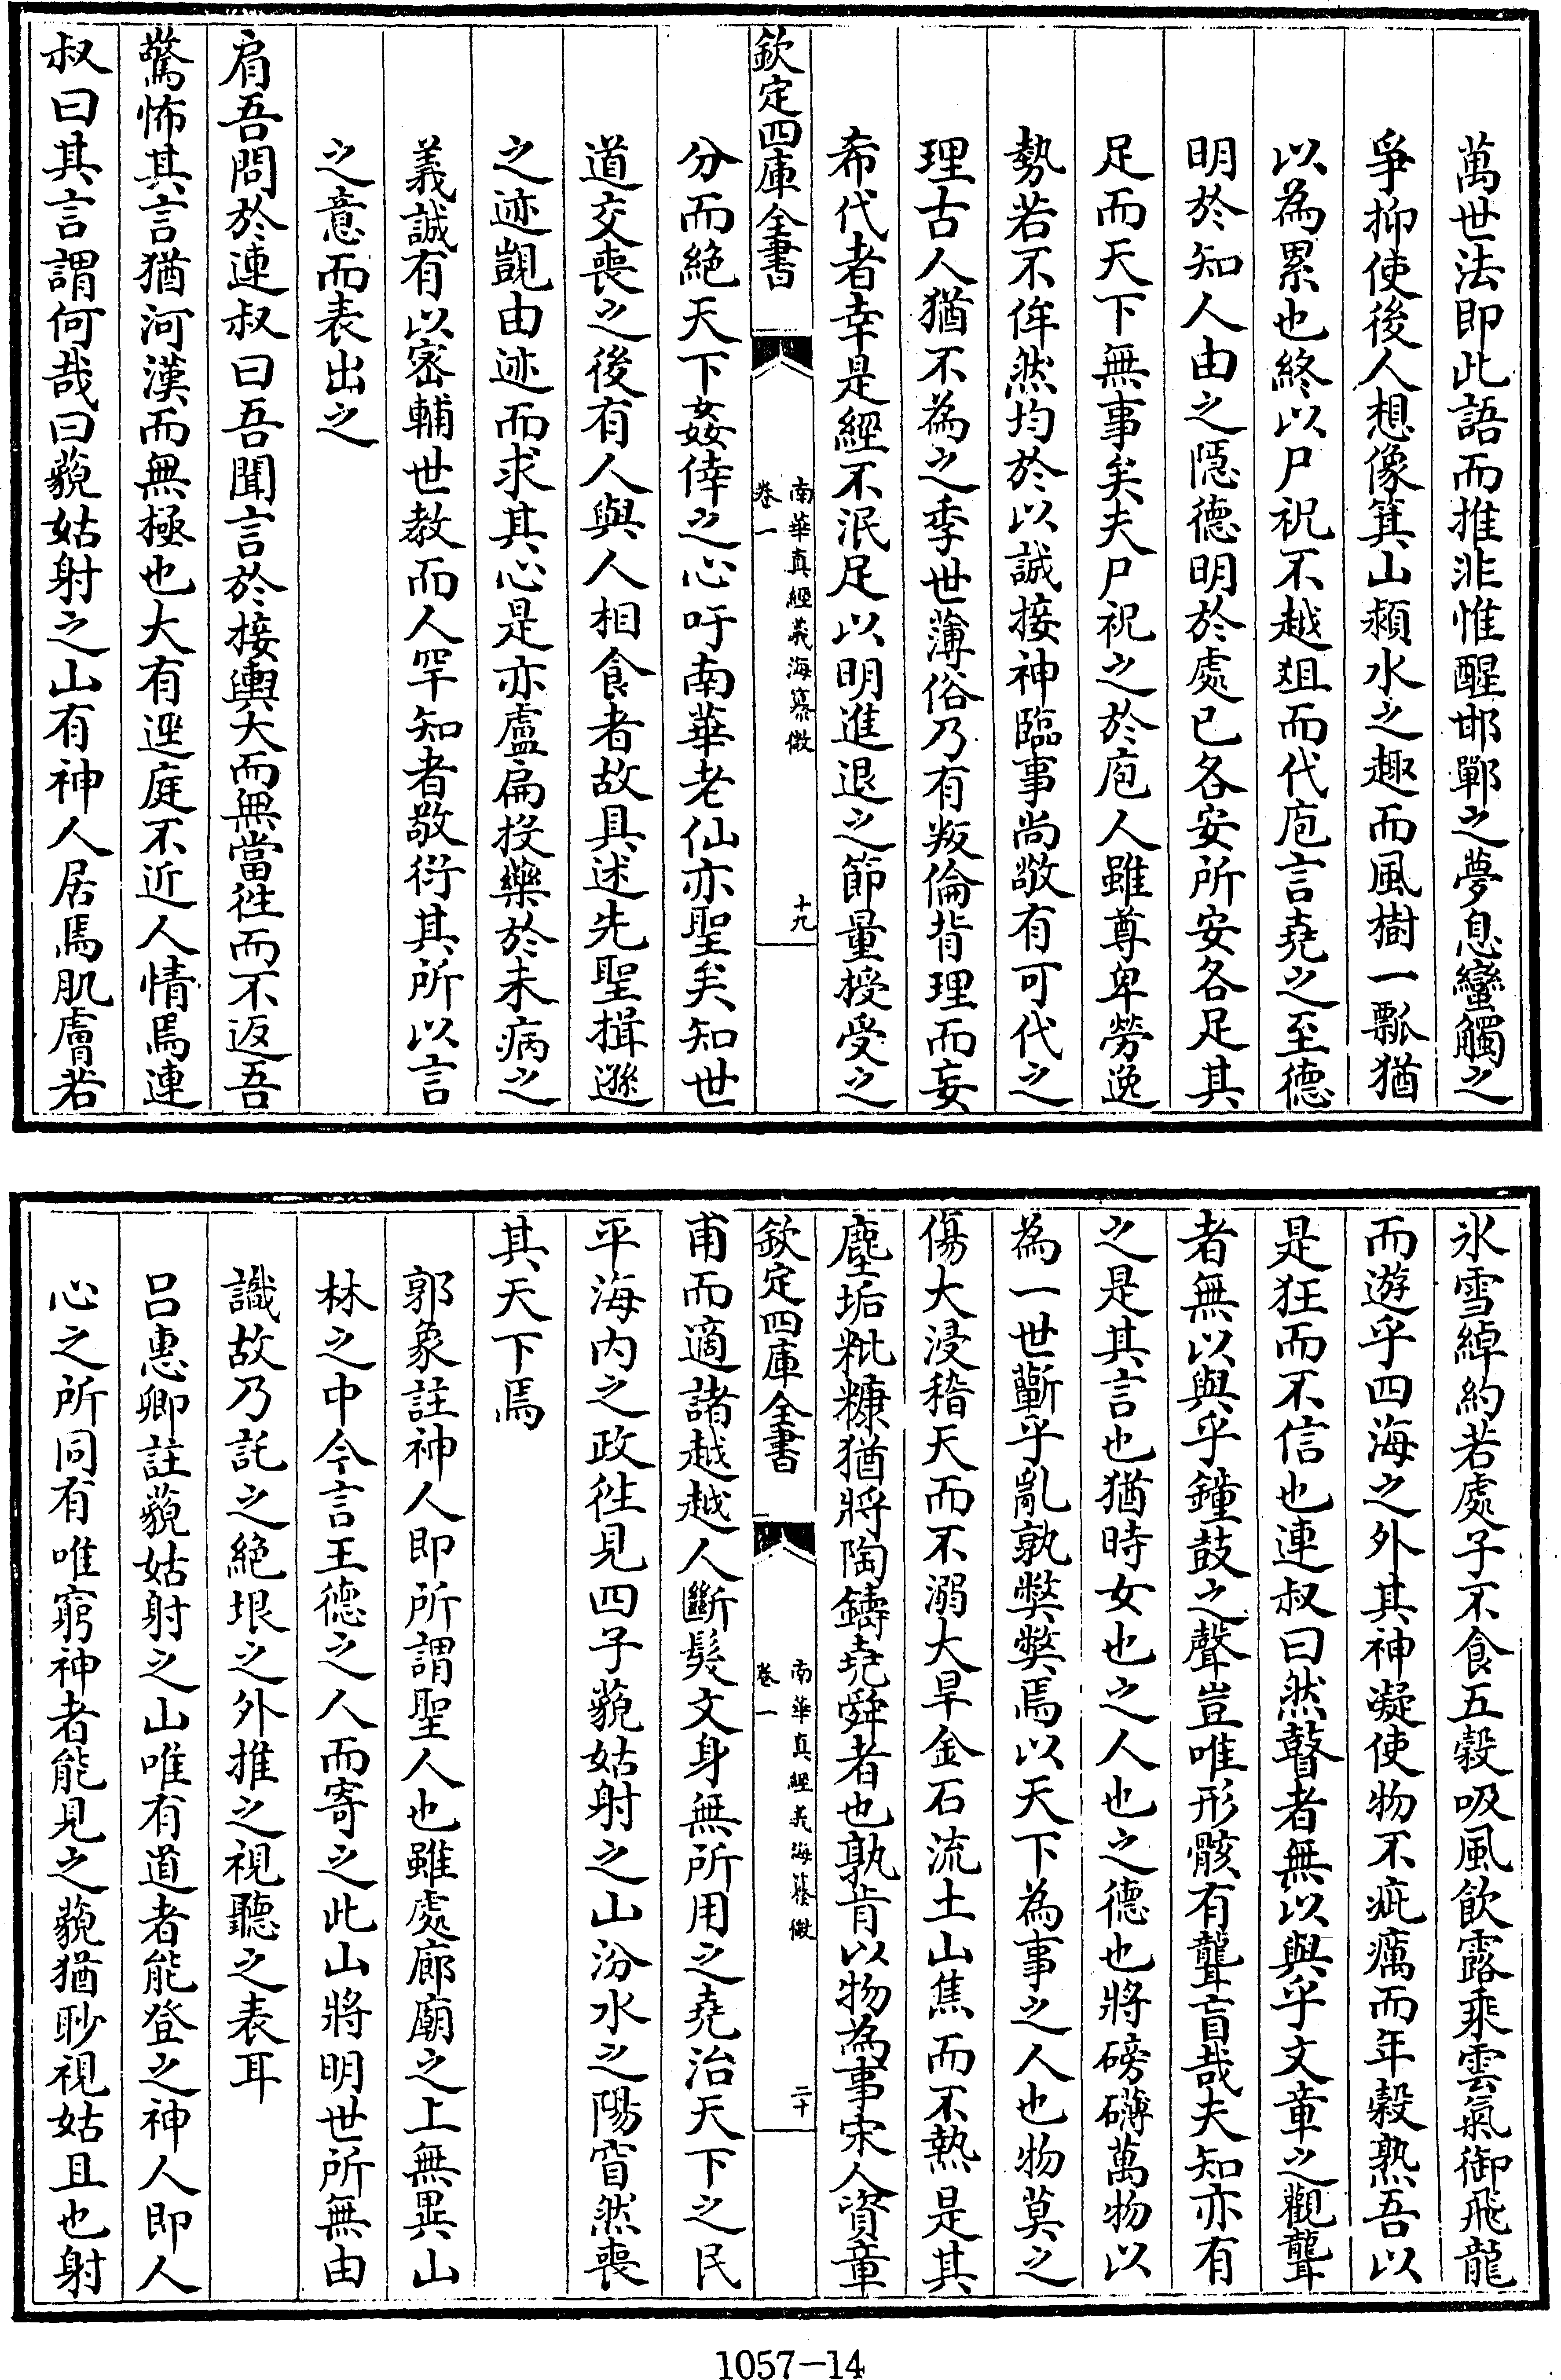 萬世法即此語而推非惟醒邯鄲之夢息蠻觸之
爭抑使後人想像箕山潁水之趣而風樹一瓢猶
以為累也終以尸祝不越俎而代庖言堯之至德
明於知人由之隱德明於處已各安所安各足其
足而天下無事矣夫尸祝之於庖人雖尊卑勞逸
勢若不侔然均於以誠接神臨事尚敬有可代之
理古人猶不為之季世薄俗乃有叛倫背理而妄
希代者幸是經不泯足以明進退之節量授受之
欽定四庫全書
南華真經義海纂微
卷一
十九
分而絕天下姦倖之心吁南華老仙亦聖矣知世
道交喪之後有人與人相食者故具述先聖揖遜
之迹覬由迹而求其心是亦盧扁投藥於未病之
義誠有以密輔世教而人罕知者敬衍其所以言
之意而表出之
肩吾問於連叔曰吾聞言於接輿大而無當徃而不返吾
驚怖其言猶河漢而無極也大有逕庭不近人情焉連
叔曰其言謂何哉曰藐姑射之山有神人居焉肌膚若
氷雪綽約若處子不食五穀吸風飲露乘雲氣御飛龍
而遊乎四海之外其神凝使物不疵癘而年穀熟吾以
是狂而不信也連叔曰然瞽者無以與乎文章之觀聾
者無以與乎鐘鼓之聲豈唯形骸有聾盲哉夫知亦有
之是其言也猶時女也之人也之德也將磅礴萬物以
為一世蘄乎亂孰弊弊焉以天下為事之人也物莫之
傷大浸稽天而不溺大旱金石流土山焦而不熱是其
塵垢粃糠猶將陶鑄堯舜者也孰肯以物為事宋人資章
欽定四庫全書
南華真經義海纂微
卷一
二十
甫而適諸越越人斷髮文身無所用之堯治天下之民
平海内之政徃見四子藐姑射之山汾水之陽窅然喪
其天下焉
郭象註神人即所謂聖人也雖處廊廟之上無異山
林之中今言王德之人而寄之此山將明世所無由
識故乃託之絕垠之外推之視聽之表耳
呂惠卿註藐姑射之山唯有道者能登之神人即人
心之所同有唯窮神者能見之藐猶眇視姑且也射
1057-14